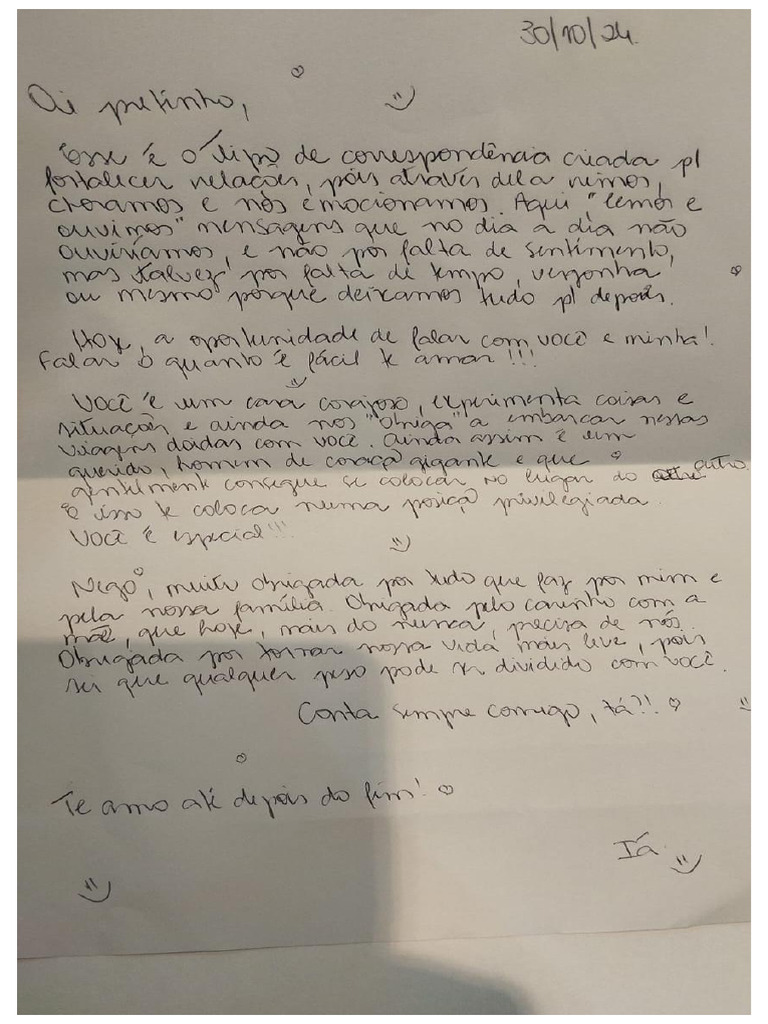 30/10/24
Oi pretinho,
Esse é o tipo de correspondência criada p/
fortalecer relações, pois através dela rimos,
choramos e nos emocionamos. Aqui "lemos e
ouvimos" mensagens que no dia a dia não
ouviríamos, e não por falta de sentimento,
mas talvez por falta de tempo, vergonha
ou mesmo porque deixamos tudo p/ depois.
Hoje, a oportunidade de falar com você é minha!
Falar o quanto é fácil te amar!!!
Você é um cara corajoso, experimenta coisas e
situações e ainda nos "obriga" a embarcar nessas
viagens doidas com você. Ainda assim é um
querido, homem de coração gigante e que
gentilmente consegue se colocar no lugar do outro.
E isso te coloca numa posição privilegiada.
Você é especial!!!
Nego, muito obrigada por tudo que faz por mim e
pela nossa família. Obrigada pelo carinho com a
mãe, que hoje, mais do nunca, precisa de nós.
Obrigada por tornar nossa vida mais leve, pois
sei que qualquer peso pode ser dividido com você.
Conta sempre comigo, tá?!!
Te amo até depois do fim!
Iá